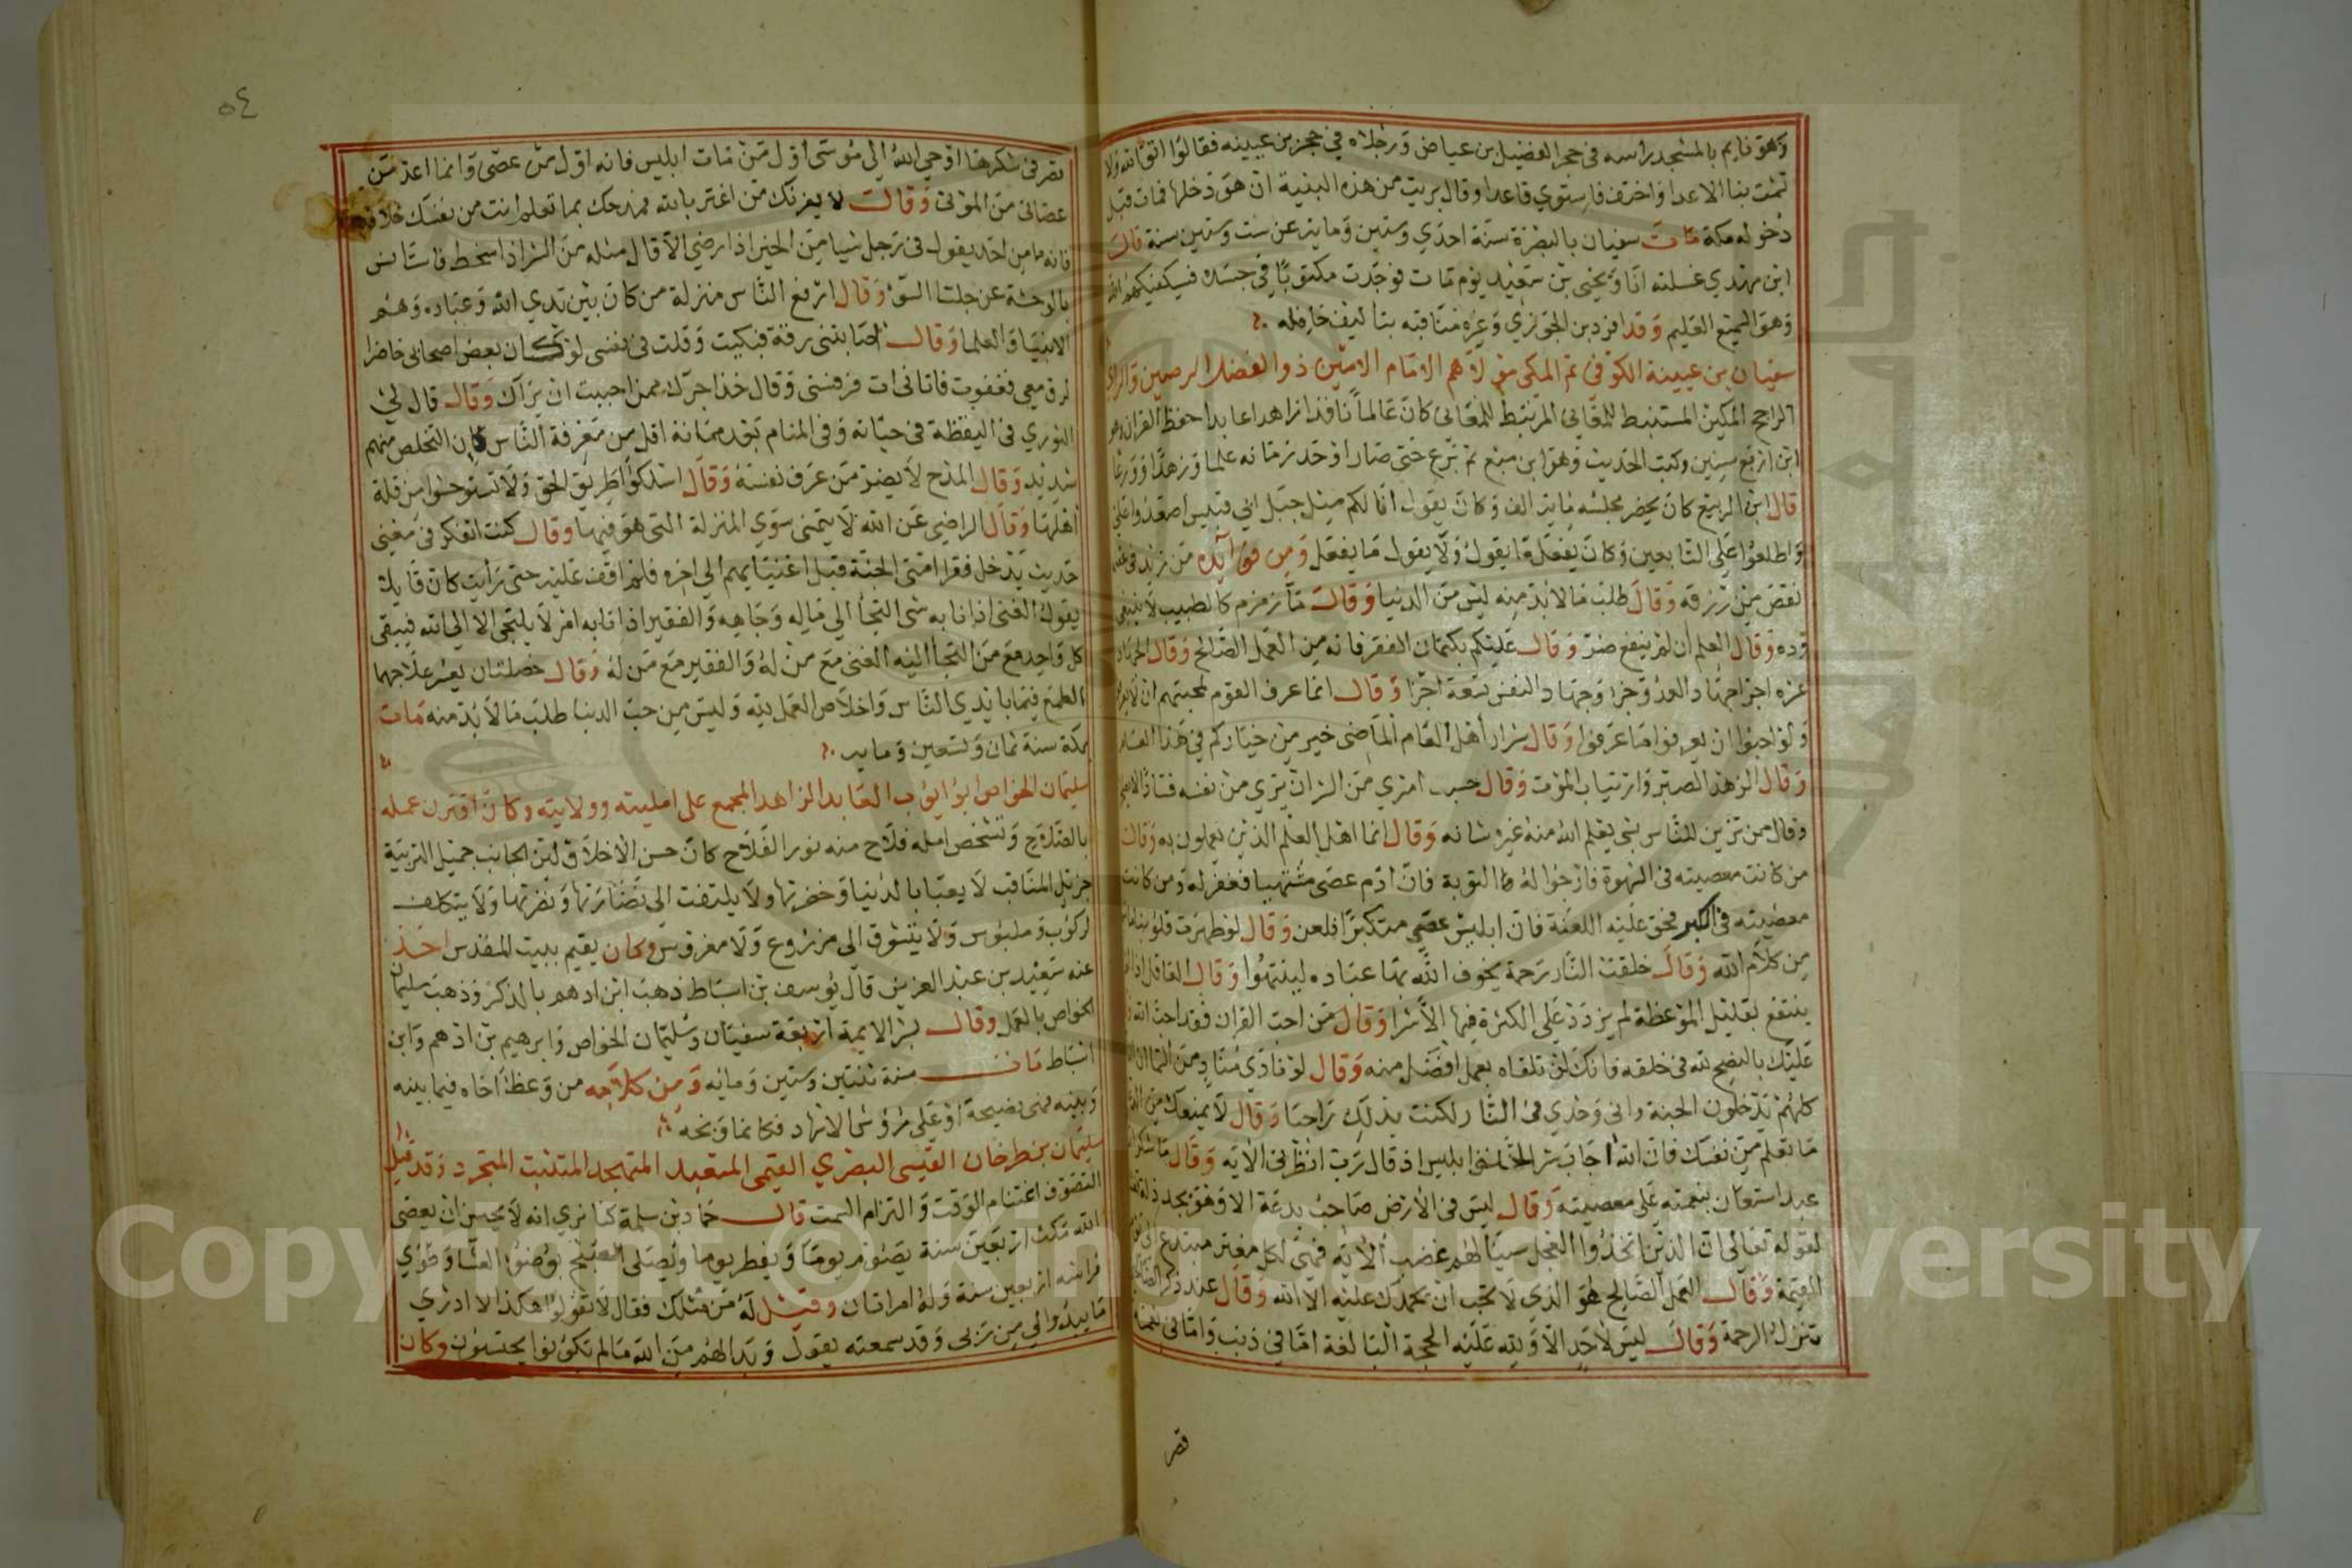 وهو نايم بالمسجد راسه في حجر الفضيل بن عياض ورجلاه في حجر بن عيينه فقالوا اتق الله ولا
تشمت بنا الاعدا واختف فاستوي قاعدا وقال بريت من هذه البنية ان هو دخلها فمات قبل
دخوله مكة مات سفيان بالبصرة سنة احدي وستين وماية عن ست وستين سنة قال
ابن مهدي غسلته انا ويحيى بن سعيد يوم مات فوجدت مكتوبا في جسده فسيكفيكهم الله
وهو السميع العليم وقد افرد بن الجوزي وغيره مناقبه بتاليف حافله
سفيان بن عيينة الكوفي ثم المكي مولاهم الامام الامين ذو الفضل الرصين والراي
الراجح المكين المستنبط للمعاني المرتبط للمعاني كان عالما نافذا زاهدا عابدا حفظ القران وهو
ابن اربع سنين وكتب الحديث وهو ابن سبع ثم برع حتى صار اوحد زمانه علما وزهدا وورعا
قال ابن الربيع كان يحضر مجلسه ماية الف وكان يقول انا لكم مثل جبل ابي قبيس اصعدوا علي
واطلعوا على التابعين وكان يفعل ما يقول ولا يقول ما يفعل ومن فوايده من زيد في عقله
نقص من رزقه وقال طلب مالا بد منه ليس من الدنيا وقال ماء زمزم كالطيب لا ينبغي
رده وقال العلم ان لم ينفع ضر وقال عليكم بكتمان الفقر فانه من العمل الصالح وقال الجهاد
عشره اجزا جهاد العدو جزا وجهاد النفس تسعة اجزا وقال انما عرف القوم لمحبتهم ان لا يعرفوا
ولو احبوا ان يعرفوا ما عرفوا وقال شرار اهل العام الماضي خير من خياركم في هذا العام
وقال الزهد الصبر وارتياب الموت وقال حسب امري من الشر ان يري من نفسه فسادا لا يصلحه
وقال من تزين للناس بشي يعلم الله منه غيره شانه وقال انما اهل العلم الذين يعملون به وقال
من كانت معصيته في الشهوة فارجوا له التوبة فان ادم عصى مشتهيا فغفر له ومن كانت
معصيته في الكبر فحق عليه اللعنة فان ابليس عصى متكبرا فلعن وقال لو طهرت قلوبنا ما شبعت
من كلام الله وقال خلقت النار رحمة يخوف الله بها عباده لينتهوا وقال العاقل اذا لم
ينتفع بقليل الموعظة لم يزدد على الكثرة فيها الا شرا وقال من احب القران فقد احب الله
عليك بالنصح لله في خلقه فانك لن تلقاه بعمل افضل منه وقال لو نادي مناد من السما ان الناس
كلهم يدخلون الجنة واني وحدي في النار لكنت بذلك راضيا وقال لا يمنعك من الدعا
ما تعلم من نفسك فان الله اجاب شر الخلق ابليس اذ قال رب انظرني الاية وقال ما شكر الله
عبد استعان بنعمته على معصيته وقال ليس في الارض صاحب بدعة الا وهو يجد ذلة
لقوله تعالى ان الذين اتخذوا العجل سينالهم غضب الاية فهي لكل مفتر مبتدع الى يوم
القيمة وقال العمل الصالح هو الذي لا تحب ان يحمدك عليه الا الله وقال عند ذكر الصالحين
تنزل الرحمة وقال ليس لاحد الا ولله عليه الحجة البالغة اما في ذنب واما في نعمة
قصر
٥٤
قصر في شكرها اوحي الله الي موسى اول من مات ابليس فانه اول من عصى وانما اعد من
عصاني من الموتى وقال لا يغرنك من اغتر بالله فمدحك بما تعلم انت من نفسك خلافه
فانه ما من احد يقول في رجل شيا من الخير اذا رضي الا قال مثله من الشر اذا سخط فاستانس
بالوحشة عن جلسا السوء وقال ارفع الناس منزلة من كان بين يدي الله وعباده وهم
الانبيا والعلما وقال اصابتني رقة فبكيت وقلت في نفسي لو كان بعض اصحابي حاضرا
لرق معي فغفوت فاتاني ات فرفسني وقال خذ اجرك ممن احببت ان يراك وقال قال لي
الثوري في اليقظة في حياته وفي المنام بعد مماته اقل من معرفة الناس فان التخلص منهم
شديد وقال المدح لا يضر من عرف نفسه وقال اسلكوا طريق الحق ولا تستوحشوا من قلة
اهلها وقال الراضي عن الله لا يتمنى سوي المنزلة التي هو فيها وقال كنت اتفكر في معنى
حديث يدخل فقرا امتي الجنة قبل اغنيايهم الي اخره فلم اقف عليه حتى رايت كان قايلا
يقول الغني اذا نابه شي التجأ الي ماله وجاهه والفقير اذا نابه امر لا يلتجى الا الى الله فيبقى
كل واحد مع من التجأ اليه الغني مع من له والفقير مع من له وقال خصلتان يعسر علاجهما
الطمع فيما بايدي الناس واخلاص العمل لله وليس من حب الدنيا طلب مالا بد منه مات
بمكة سنة ثمان وتسعين وماية
سليمان الخواص ابو ايوب العابد الزاهد المجمع على امليته وولايته وكان اقترن عمله
بالصلاح وتشخص امله فلاح منه نور الفلاح كان حسن الاخلاق لين الجانب جميل التربية
جزيل المناقب لا يعبا بالدنيا وخضرتها ولا يلتفت الى نضارتها ونضرتها ولا يتكلف
لركوب وملبوس ولا يتشوق الى مزروع ولا مغروس وكان يقيم ببيت المقدس اخذ
عنه سعيد بن عبد العزيز قال يوسف بن اسباط ذهب ابن ادهم بالذكر وذهب سليمان
الخواص بالعمل وقال بشر الايمة اربعة سفيان وسليمان الخواص وابرهيم بن ادهم وابن
اسباط مات سنة ثنتين وستين ومايه ومن كلامه من وعظ اخاه فيما بينه
وبينه فهي نصيحة او على رؤوس الاشهاد فكانما وبخه
سليمان بن طرخان القيسي البصري التيمي المتعبد المتهجد المتثبت المتجرد وقد قيل
التصوف اغتنام الوقت والتزام السمت قال حماد بن سلمة كنا نري انه لا يحسن ان يعصى
الله مكث اربعين سنة يصوم يوما ويفطر يوما ويصلى الصبح بوضوء العشا وطوي
فراشه اربعين سنة وله امراتان وقيل له من مثلك فقال لا تقولوا هكذا لا ادري
ما يبدوا لي من ربي وقد سمعته يقول وبدا لهم من الله مالم يكونوا يحتسبون وكان